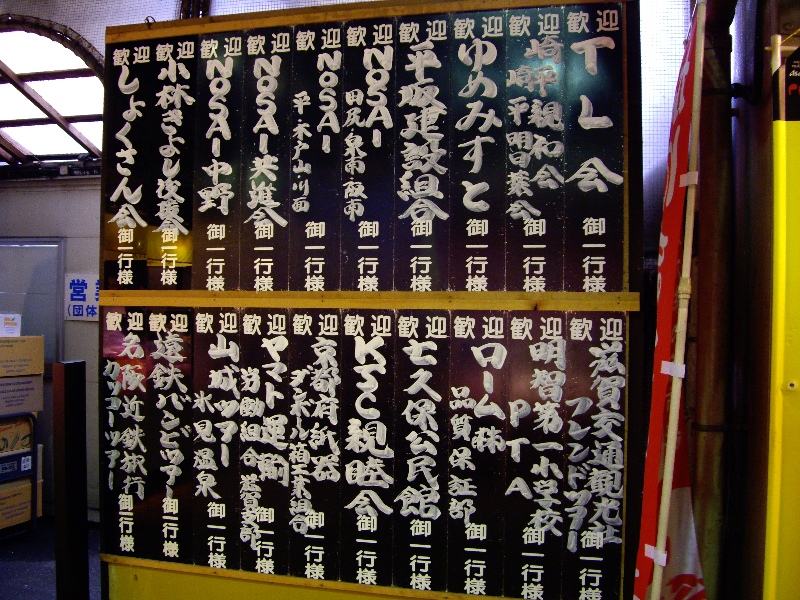 歓迎 TL会 御一行様
歓迎 崎平親和会 崎平明日葉会 御一行様
歓迎 ゆめみすと 御一行様
歓迎 平坂建設組合 御一行様
歓迎 NOSAI 田尻・泉南・阪南 御一行様
歓迎 NOSAI 平・木戸山・川面 御一行様
歓迎 NOSAI共進会 御一行様
歓迎 NOSAI中野 御一行様
歓迎 小林きよし後援会 御一行様
歓迎 しょくさん会 御一行様
歓迎 滋賀交通観光社 フレンドツアー 御一行様
歓迎 明智第一小学校 PTA 御一行様
歓迎 ローム㈱ 品質保証部 御一行様
歓迎 七久保公民館 御一行様
歓迎 KSC親睦会 御一行様
歓迎 京都府紙器 ダンボール箱工業組合 御一行様
歓迎 ヤマト運輸 労働組合 御一行様
歓迎 山城ツアー 氷見温泉 御一行様
歓迎 遠鉄バンビツアー 御一行様
歓迎 名阪近鉄旅行 カッコーツアー 御一行様
営業
(団体